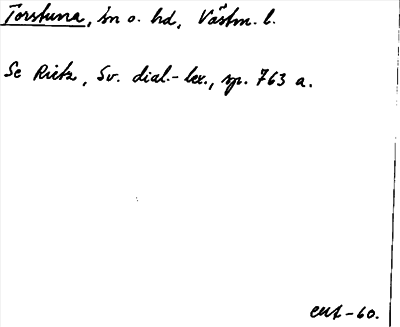 Torstuna, sn o. hd, Västm. l.
Se Rietz, Sv. dial.-lex., sp. 763 a.
-60.